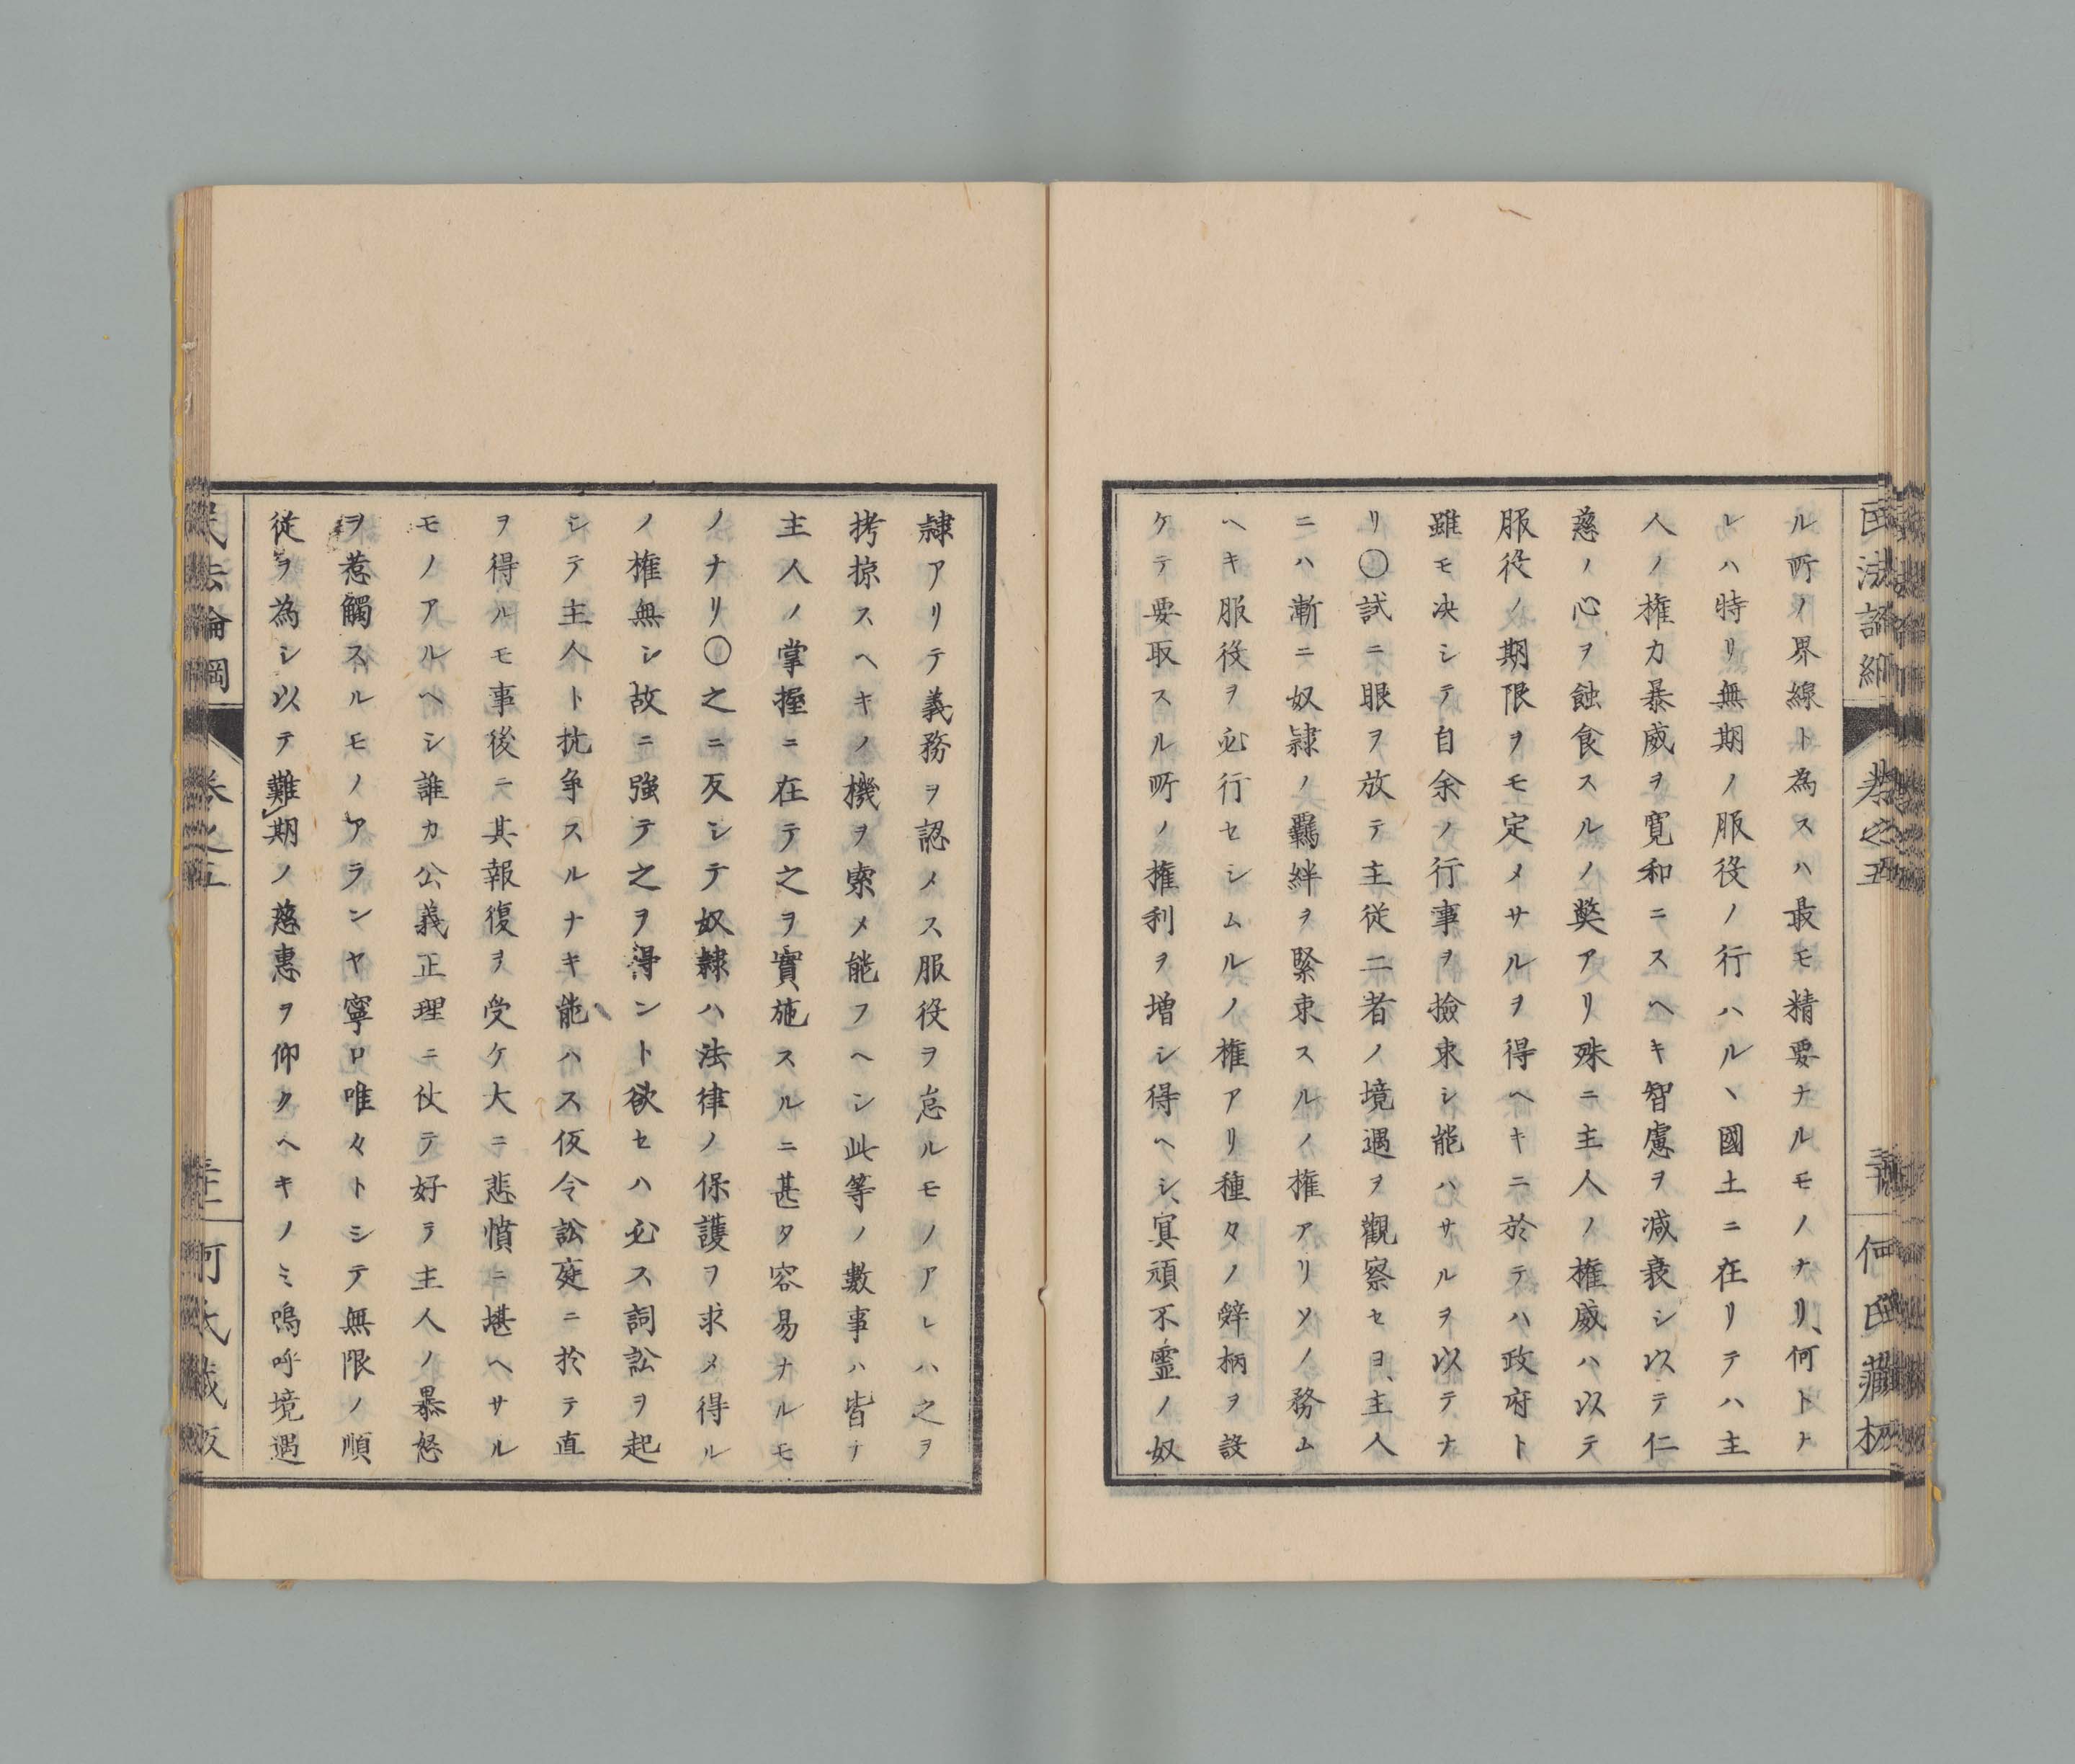 ル所ノ界線ト為スハ最モ精要ナルモノナリ、何トナ
レハ時リ無期ノ服役ノ行ハルヽ國土ニ在リテハ主
人ノ権力暴威ヲ寛和ニスヘキ智慮ヲ减衰シ以テ仁
慈ノ心ヲ蝕食スルノ獘アリ殊ニ主人ノ権威ハ以テ
服役ノ期限ヲモ定メサルヲ得ヘキニ於テハ政府ト
雖モ决シテ自余ノ行事ヲ撿束シ能ハサルヲ以テナ
リ〇試ニ眼ヲ放テ主従二者ノ境遇ヲ觀察セヨ、主人
ニハ漸ニ奴隷ノ羈絆ヲ緊束スルノ権アリソノ務ム
ヘキ服役ヲ必行セシムルノ権アリ種々ノ辞柄ヲ設
ケテ要取スル所ノ権利ヲ増シ得ヘシ、冥頑不霊ノ奴
隷アリテ義務ヲ認メス服役ヲ怠ルモノアレハ之ヲ
拷掠スヘキノ機ヲ索メ能フヘシ此等ノ數事ハ皆ナ
主人ノ掌握ニ在テ之ヲ實施スルニ甚タ容易ナルモ
ノナリ〇之ニ反シテ奴隷ハ法律ノ保護ヲ求メ得ル
ノ権無シ故ニ強テ之ヲ得ント欲セハ必ス詞訟ヲ起
シテ主人ト抗争スルナキ能ハス仮令訟庭ニ於テ直
ヲ得ルモ事後ニ其報復ヲ受ケ大ニ悲憤ニ堪ヘサル
モノアルヘシ誰カ公義正理ニ仗テ好ラ主人ノ暴怒
ヲ惹觸スルモノアランヤ寧ロ唯々トシテ無限ノ順
従ヲ為シ以テ難期ノ慈惠ヲ仰クヘキノミ嗚呼境遇
民法論綱
巻之五
何氏藏版